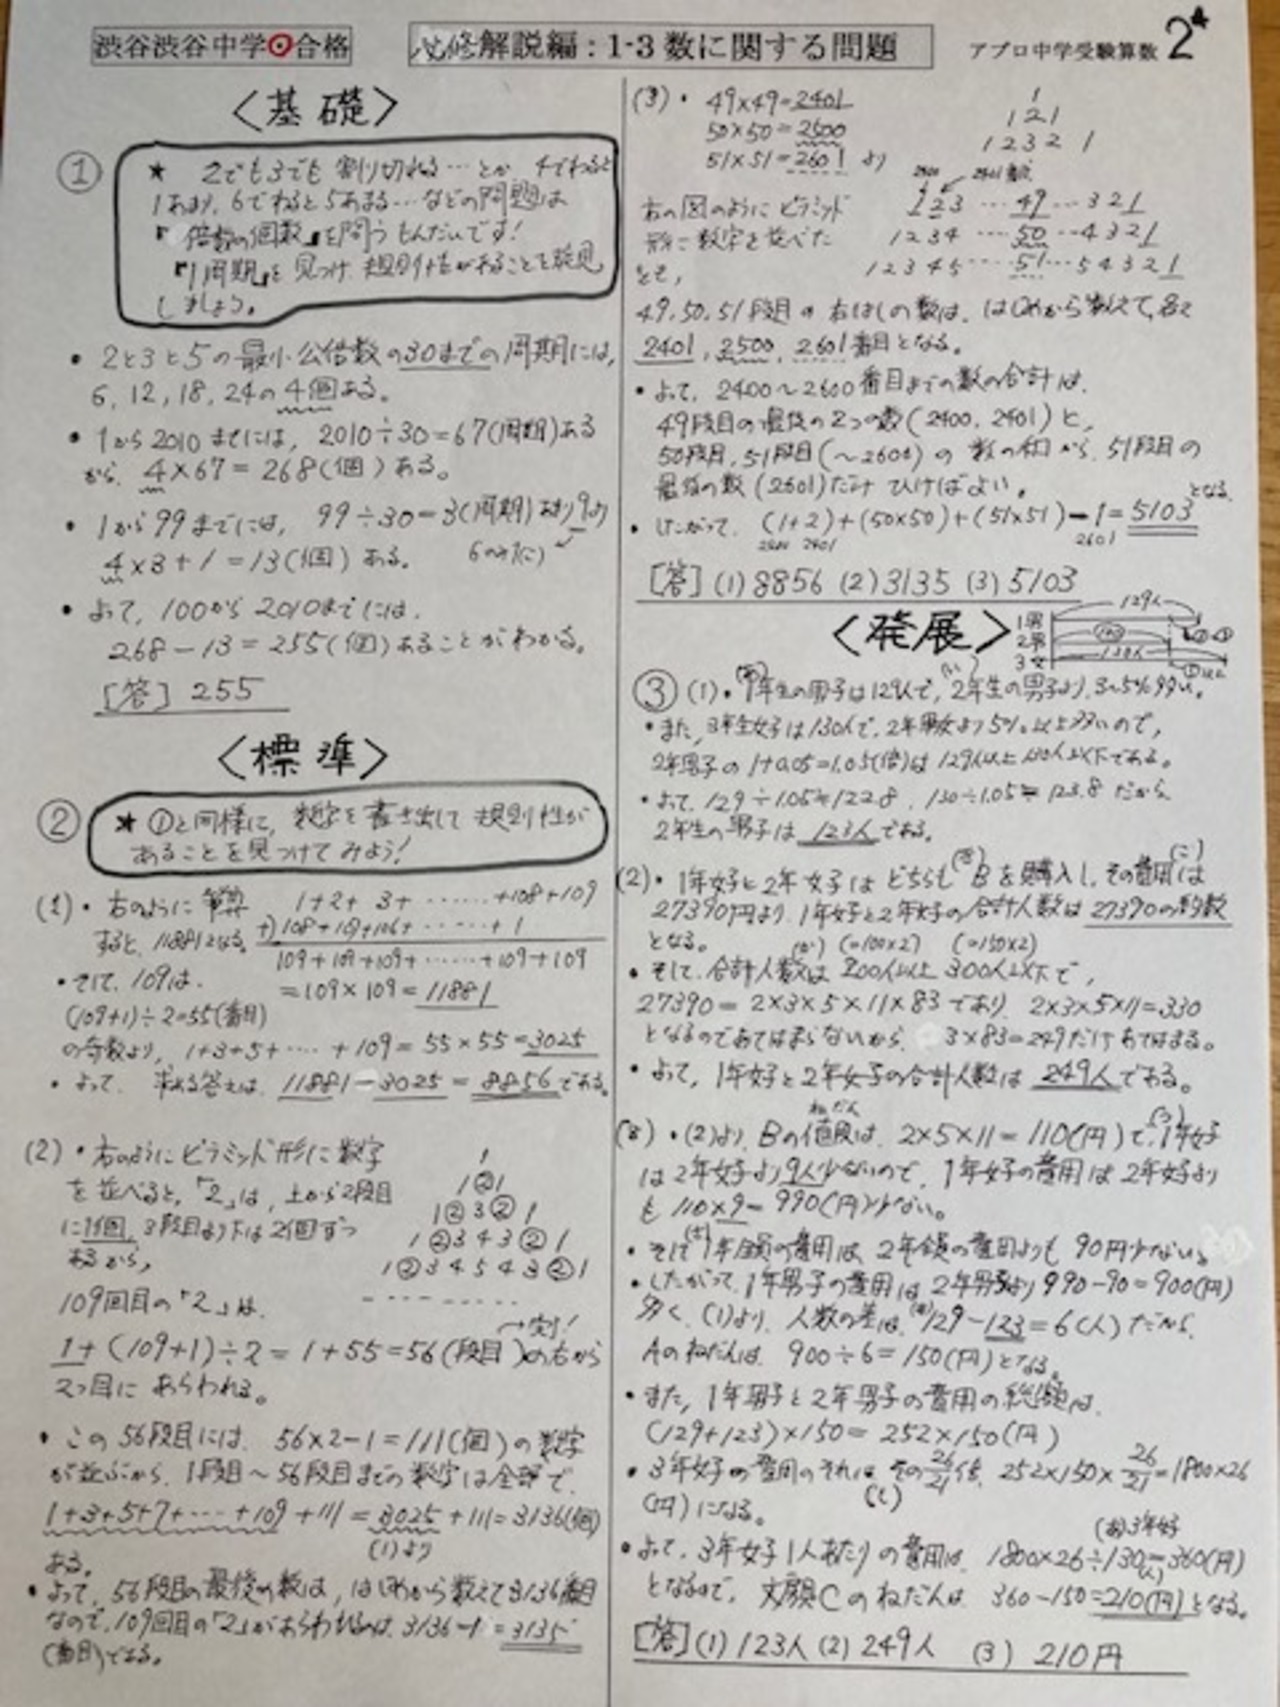 渋谷渋谷中学⊙合格
必修解説編：1-3 数に関する問題
アプロ中学受験算数 2
〈基礎〉
①
★ 2でも3でも割り切れる…とか 4でわると
1あまり、6でわると5あまる…などの問題は
『倍数の個数』を問うもんだいです!
『1周期』を見つけ、規則性があることを発見
しましょう。
・2と3と5の最小公倍数の30までの周期には、
6, 12, 18, 24の4個ある。
・1から2010までには、2010÷30=67(周期)ある
から、4×67=268(個)ある。
・1から99までには、99÷30=3(周期)あまり9より
4×3+1=13(個)ある。 6のみたに
・よって、100から2010までには、
268-13=255(個)あることがわかる。
[答] 255
〈標準〉
②
★ ①と同様に、数字を書き出して規則性が
あることを見つけてみよう!
(1)・右のように筆算
すると、11881となる。
1+2+3+……+108+109
+)108+107+106+……+1
109+109+109+……+109+109
=109×109=11881
・そして、109は、
(109+1)÷2=55(番目)
の奇数より、1+3+5+…+109=55×55=3025
・よって、求める答えは、11881-3025=8856である。
(2)・右のようにピラミッド形に数字
を並べると、「2」は、上から2段目
に1個、3段目より下は2個ずつ
あるから、
1
1②1
1②3②1
1②343②1
1②34543②1
109回目の「2」は、
→実!
1+(109+1)÷2=1+55=56(段目)の右から
2つ目にあらわれる。
・この56段目には、56×2-1=111(個)の数字
が並ぶから、1段目～56段目までの数字は全部で、
1+3+5+7+…+109+111=3025+111=3136(個)
(1)より
ある。
・よって、56段目の最後の数は、はじめから数えて3136番目
なので、109回目の「2」があらわれるのは、3136-1=3135
(番目)である。
(3)・49×49=2401
50×50=2500
51×51=2601 より
1
121
12321
右の図のようにピラミッド
形に数字を並べた
とき、
123…49…321
1234…50…4321
12345…51…54321
49, 50, 51段目の右はしの数は、はじめから数えて、各々
2401, 2500, 2601番目となる。
・よって、2400～2600番目までの数の合計は、
49段目の最後の2つの数(2400, 2401)と、
50段目、51段目(～2600)の数の和から、51段目の
最後の数(2601)だけひけばよい。
・したがって、(1+2)+(50×50)+(51×51)-1=5103となる。
2400 2401 2601
[答] (1) 8856 (2) 3135 (3) 5103
〈発展〉
129人
1男
2男
3女
130人
③(1)・1年生の男子は129人で、2年生の男子より、3～5%多い。
・また、3年生女子は130人で、2年男女より5%以上多いので、
2年男子の1+0.05=1.05(倍)は129人以上130人以下である。
・よって、129÷1.05≒122.8、130÷1.05≒123.8だから、
2年生の男子は123人である。
(2)・1年女子と2年女子はどちらもBを購入し、その費用は
27390円より、1年女子と2年女子の合計人数は27390の約数
となる。 (=100×2) (=150×2)
・そして、合計人数は200人以上300人以下で、
27390=2×3×5×11×83であり、2×3×5×11=330
となるのであてはまらないから、3×83=249だけあてはまる。
・よって、1年女子と2年女子の合計人数は249人である。
ねだん
(3)・(2)より、Bの値段は、2×5×11=110(円)で、1年女子
は2年女子より9人少ないので、1年女子の費用は2年女子より
も110×9=990(円)少ない。
・そして1年全員の費用は、2年全員の費用よりも90円少ない。
・したがって、1年男子の費用は2年男子より990-90=900(円)
多く、(1)より、人数の差は、129-123=6(人)だから、
Aのねだんは、900÷6=150(円)となる。
・また、1年男子と2年男子の費用の総額は、
(129+123)×150=252×150(円)
・3年女子の費用のそれは、その26/21倍、252×150×26/21=1800×26
(円)になる。
(あ)3年女子
・よって、3年女子1人あたりの費用は、1800×26÷130=360(円)
となるので、文房具Cのねだんは、360-150=210(円)となる。
[答] (1) 123人 (2) 249人 (3) 210円